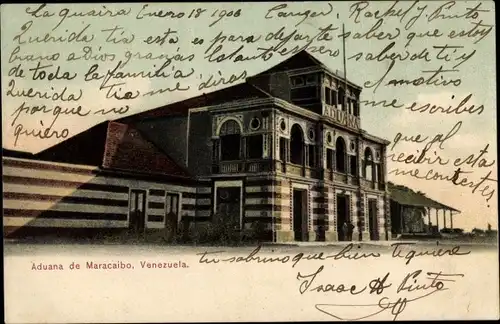 La Guaira Enero 18 1906
Conger. Rachel J Pinto
Querida tia esta es para dejarte saber que estoy
bueno a Dios gracias lo tanto espero saber de ti y
de toda la familia, el motivo
Querida tia me diras me escribes
porque no
quiero
que al
recibir esta
me contestes.
ADUANA
Aduana de Maracaibo, Venezuela.
tu sobrino que bien te quiere
Isaac H Pinto